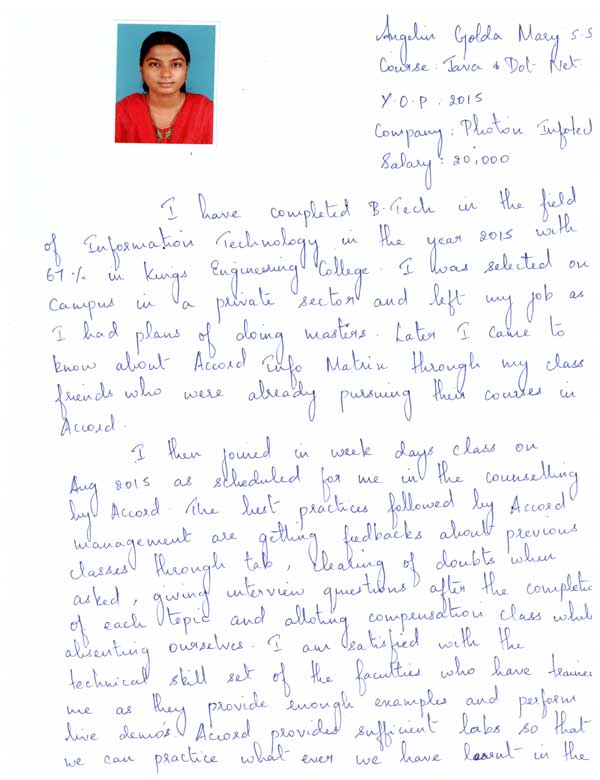 Angelin Golda Mary S.S
Course : Java & Dot Net
Y.O.P : 2015
Company : Photon Infotec
Salary : 20,000
I have completed B.Tech in the field
of Information Technology in the year 2015 with
67% in Kings Engineering College. I was selected on
campus in a private sector and left my job as
I had plans of doing masters. Later I came to
know about Accord Info Matrix through my class
friends who were already pursuing their courses in
Accord.
I then joined in week days class on
Aug 2015 as scheduled for me in the counselling
by Accord. The best practices followed by Accord
management are getting feedbacks about previous
classes through tab, clearing of doubts when
asked, giving interview questions after the completio
of each topic and alloting compensation class while
absenting ourselves. I am satisfied with the
technical skill set of the faculties who have traine
me as they provide enough examples and perform
live demos. Accord provides sufficient labs so that
we can practice what ever we have learnt in the